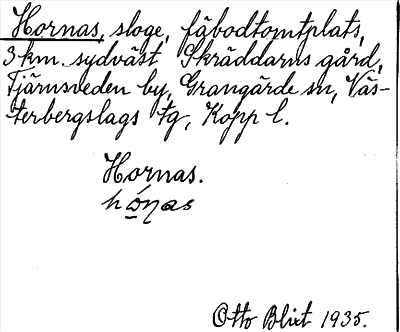 Hornas, sloge, fäbodtomtplats,
3 km. sydväst Skräddarns gård,
Tjärnsveden by, Grangärde sn, Väs-
terbergslags tg, Kopp l.
Hornas.
Otto Blixt 1935.